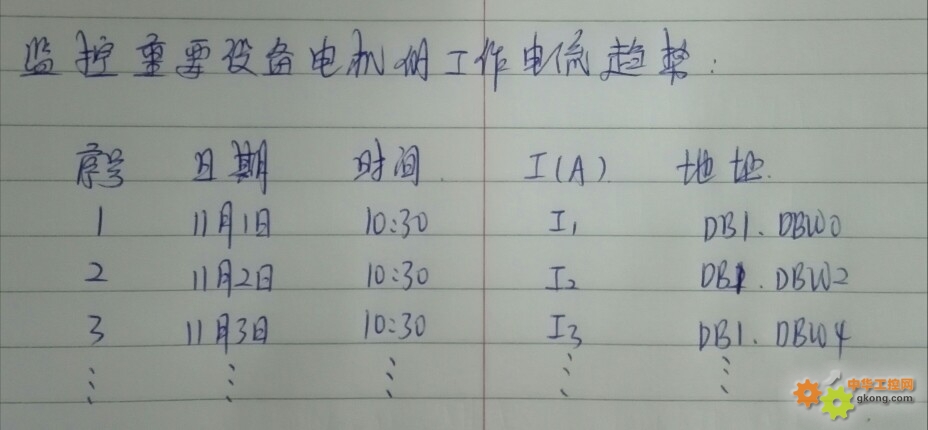 监控重要设备电机的工作电流趋势:
序号 日期 时间 I(A) 地地.
1 11月1日 10:30 I₁ DB1. DBW0
2 11月2日 10:30 I₂ DB1. DBW2
3 11月3日 10:30 I₃ DB1. DBW4
⋮ ⋮ ⋮ ⋮ ⋮
中华工控网
gkong.com